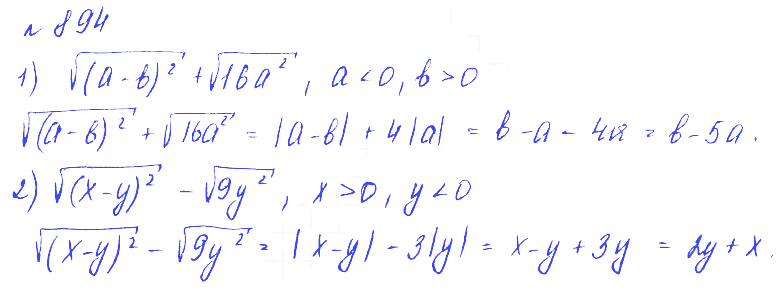 № 894
1) √(a-b)² + √16a², a<0, b>0
√(a-b)² + √16a² = |a-b| + 4|a| = b-a-4a = b-5a.
2) √(x-y)² - √9y², x>0, y<0
√(x-y)² - √9y² = |x-y| - 3|y| = x-y+3y = 2y+x.